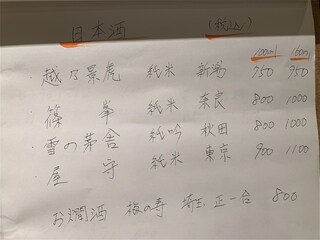 日本酒 (税込)
100ml 160ml
・越乃景虎 純米 新潟 750 950
・篠峯 純米 奈良 800 1000
・雪の茅舎 純吟 秋田 800 1000
・屋守 純米 東京 900 1100
お燗酒 埼玉 正一合 800